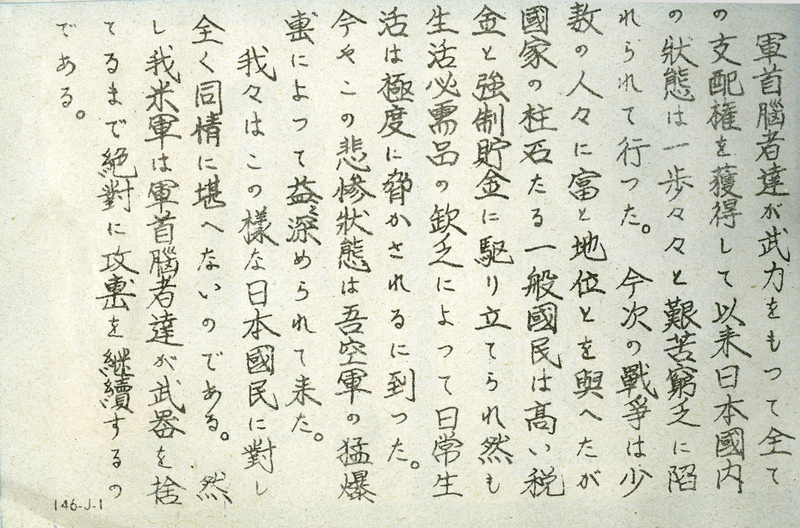 軍首腦者達が武力をもつて全て
の支配權を獲得して以来日本國内
の狀態は一歩々々と艱苦窮乏に陥
れられて行つた。今次の戰爭は少
数の人々に富と地位とを與へたが
國家の柱石たる一般國民は高い税
金と強制貯金に駆り立てられ然も
生活必需品の欽乏によつて日常生
活は極度に脅かされるに到つた。
今やこの悲慘狀態は吾空軍の猛爆
擊によつて益々深められて来た。
我々はこの樣な日本國民に對し
全く同情に堪へないのである。然
し我米軍は軍首腦者達が武器を捨
てるまで絕對に攻擊を継續するの
である。
146-J-1